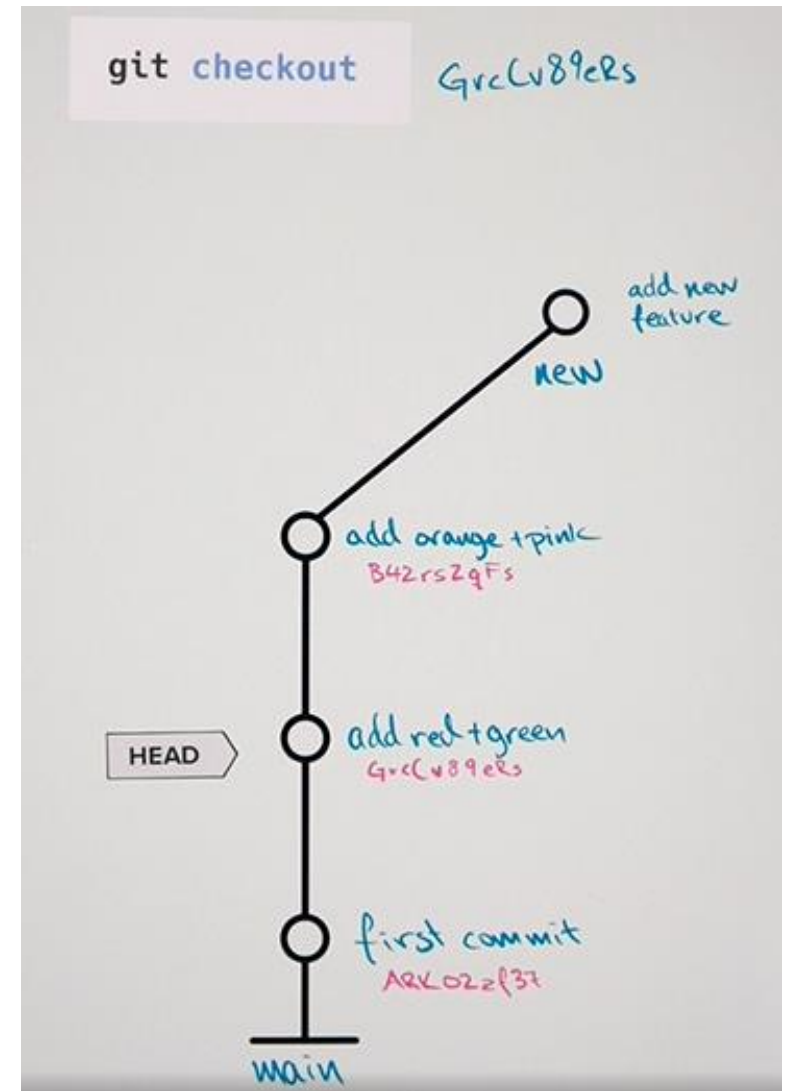 git checkout GrcCv89eRs
add new
feature
new
add orange + pink
B42rsZqFs
add red + green
GrcCv89eRs
HEAD
first commit
ARK02zf37
main